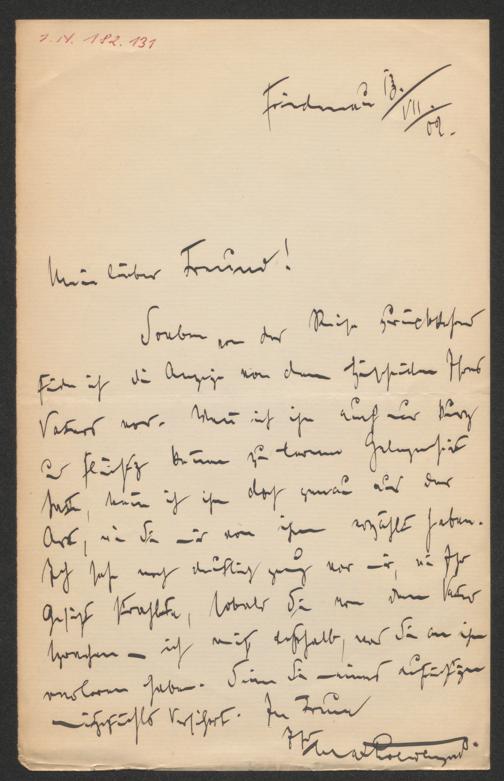 I.N. 182.131
Friedenau 13./VII. 02.
Mein lieber Freund!
Soeben von der Reise zurückkehrend
finde ich die Anzeige von dem Hinscheiden Ihres
Vaters vor. Wenn ich ihn auch nur kurz
und flüchtig kennen zu lernen Gelegenheit
hatte, kenne ich ihn doch genau aus der
Art, wie Sie mir von ihm erzählt haben.
Ich sehe noch deutlich genug vor mir, wie Ihr
Gesicht strahlte, sobald Sie von dem Vater
sprachen — ich weiß deshalb, was Sie an ihm
verloren haben. Seien Sie meines aufrichtigen
Mitgefühls versichert. In Treue
Ihr